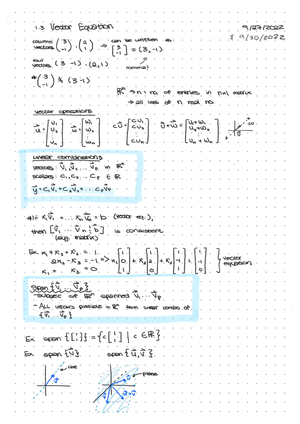 1.3 Vector Equation
9/27/2022
& 9/30/2022
column vectors (3 -1) · (2 1) → can be written as: [3 -1] = (3,-1)
row vectors (3 -1) · (2,1)
comma!
* (3 -1) ≠ (3 -1)
ℝⁿ → n = no. of entries in nx1 matrix
→ all lists of n real no.
vector operations
ū = [u₁ u₂ ⋮ uₙ] w̄ = [w₁ w₂ ⋮ wₙ] cū = [cu₁ cu₂ ⋮ cuₙ] ū+w̄ = [u₁+w₁ u₂+w₂ ⋮ uₙ+wₙ]
linear combinations
vectors: v̄₁, v̄₂, ... v̄ₚ in ℝⁿ
scalars: c₁, c₂, ... cₚ ∈ ℝ
ȳ = c₁v̄₁ + c₂v̄₂ + ... cₚv̄ₚ
* if x₁v̄₁ + ... xₙv̄ₙ = b (vector eq.),
then [v̄₁ ... v̄ₙ | b̄] is consistent
(aug. matrix)
Ex x₁ + x₂ + x₃ = 1
x₁ + x₃ = 0
vector equation
span {v̄₁ ... v̄ₚ}
- subset of ℝⁿ spanned v̄₁ ... v̄ₚ
- ALL vectors possible in ℝⁿ from linear combo of
{v̄₁ ... v̄ₚ}
Ex span {[1 1]} = {c[1 1] | c ∈ ℝ}
Ex span {v̄} span {ū, v̄}
line
plane